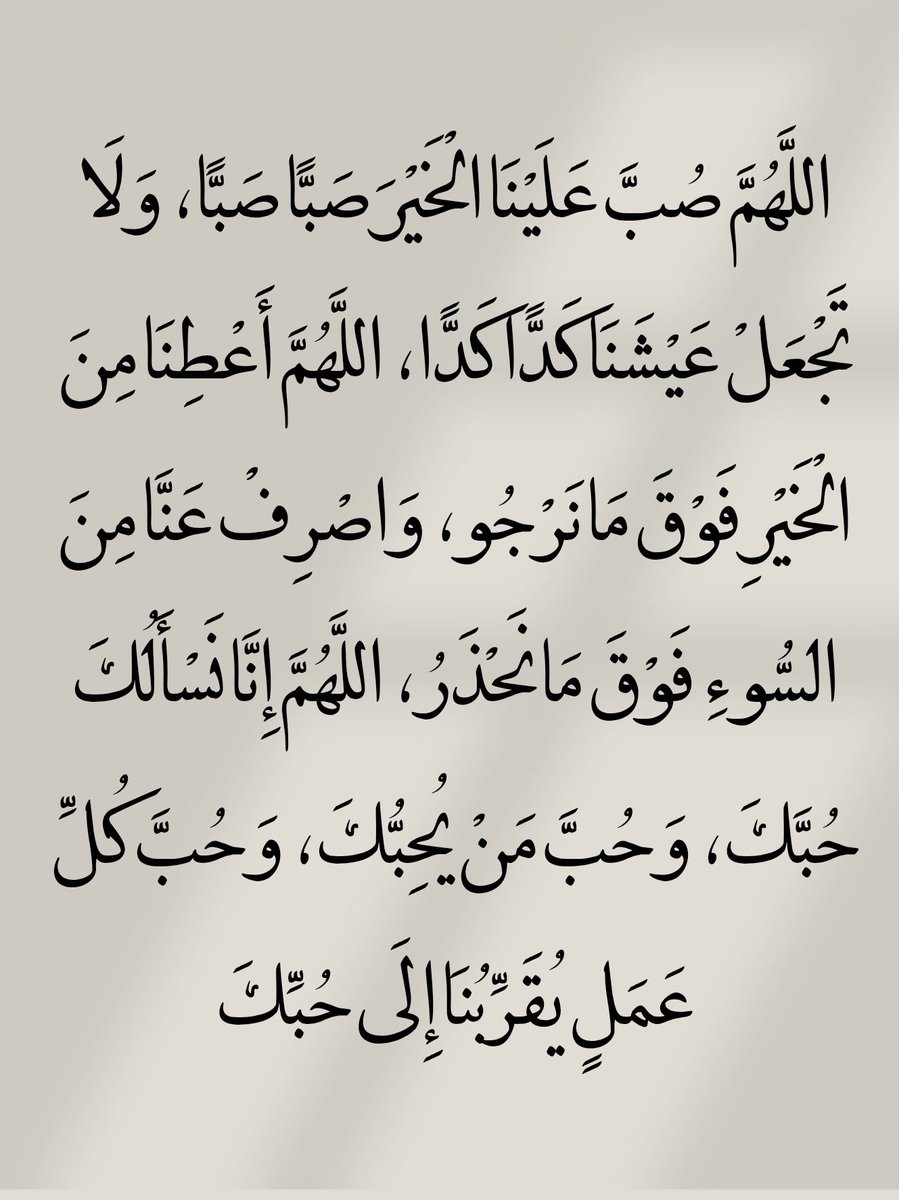 اللَّهُمَّ صُبَّ عَلَيْنَا الْخَيْرَ صَبًّا صَبًّا، وَلَا
تَجْعَلْ عَيْشَنَا كَدًّا كَدًّا، اللَّهُمَّ أَعْطِنَا مِنَ
الْخَيْرِ فَوْقَ مَا نَرْجُو، وَاصْرِفْ عَنَّا مِنَ
السُّوءِ فَوْقَ مَا نَحْذَرُ، اللَّهُمَّ إِنَّا نَسْأَلُكَ
حُبَّكَ، وَحُبَّ مَنْ يُحِبُّكَ، وَحُبَّ كُلِّ
عَمَلٍ يُقَرِّبُنَا إِلَى حُبِّكَ